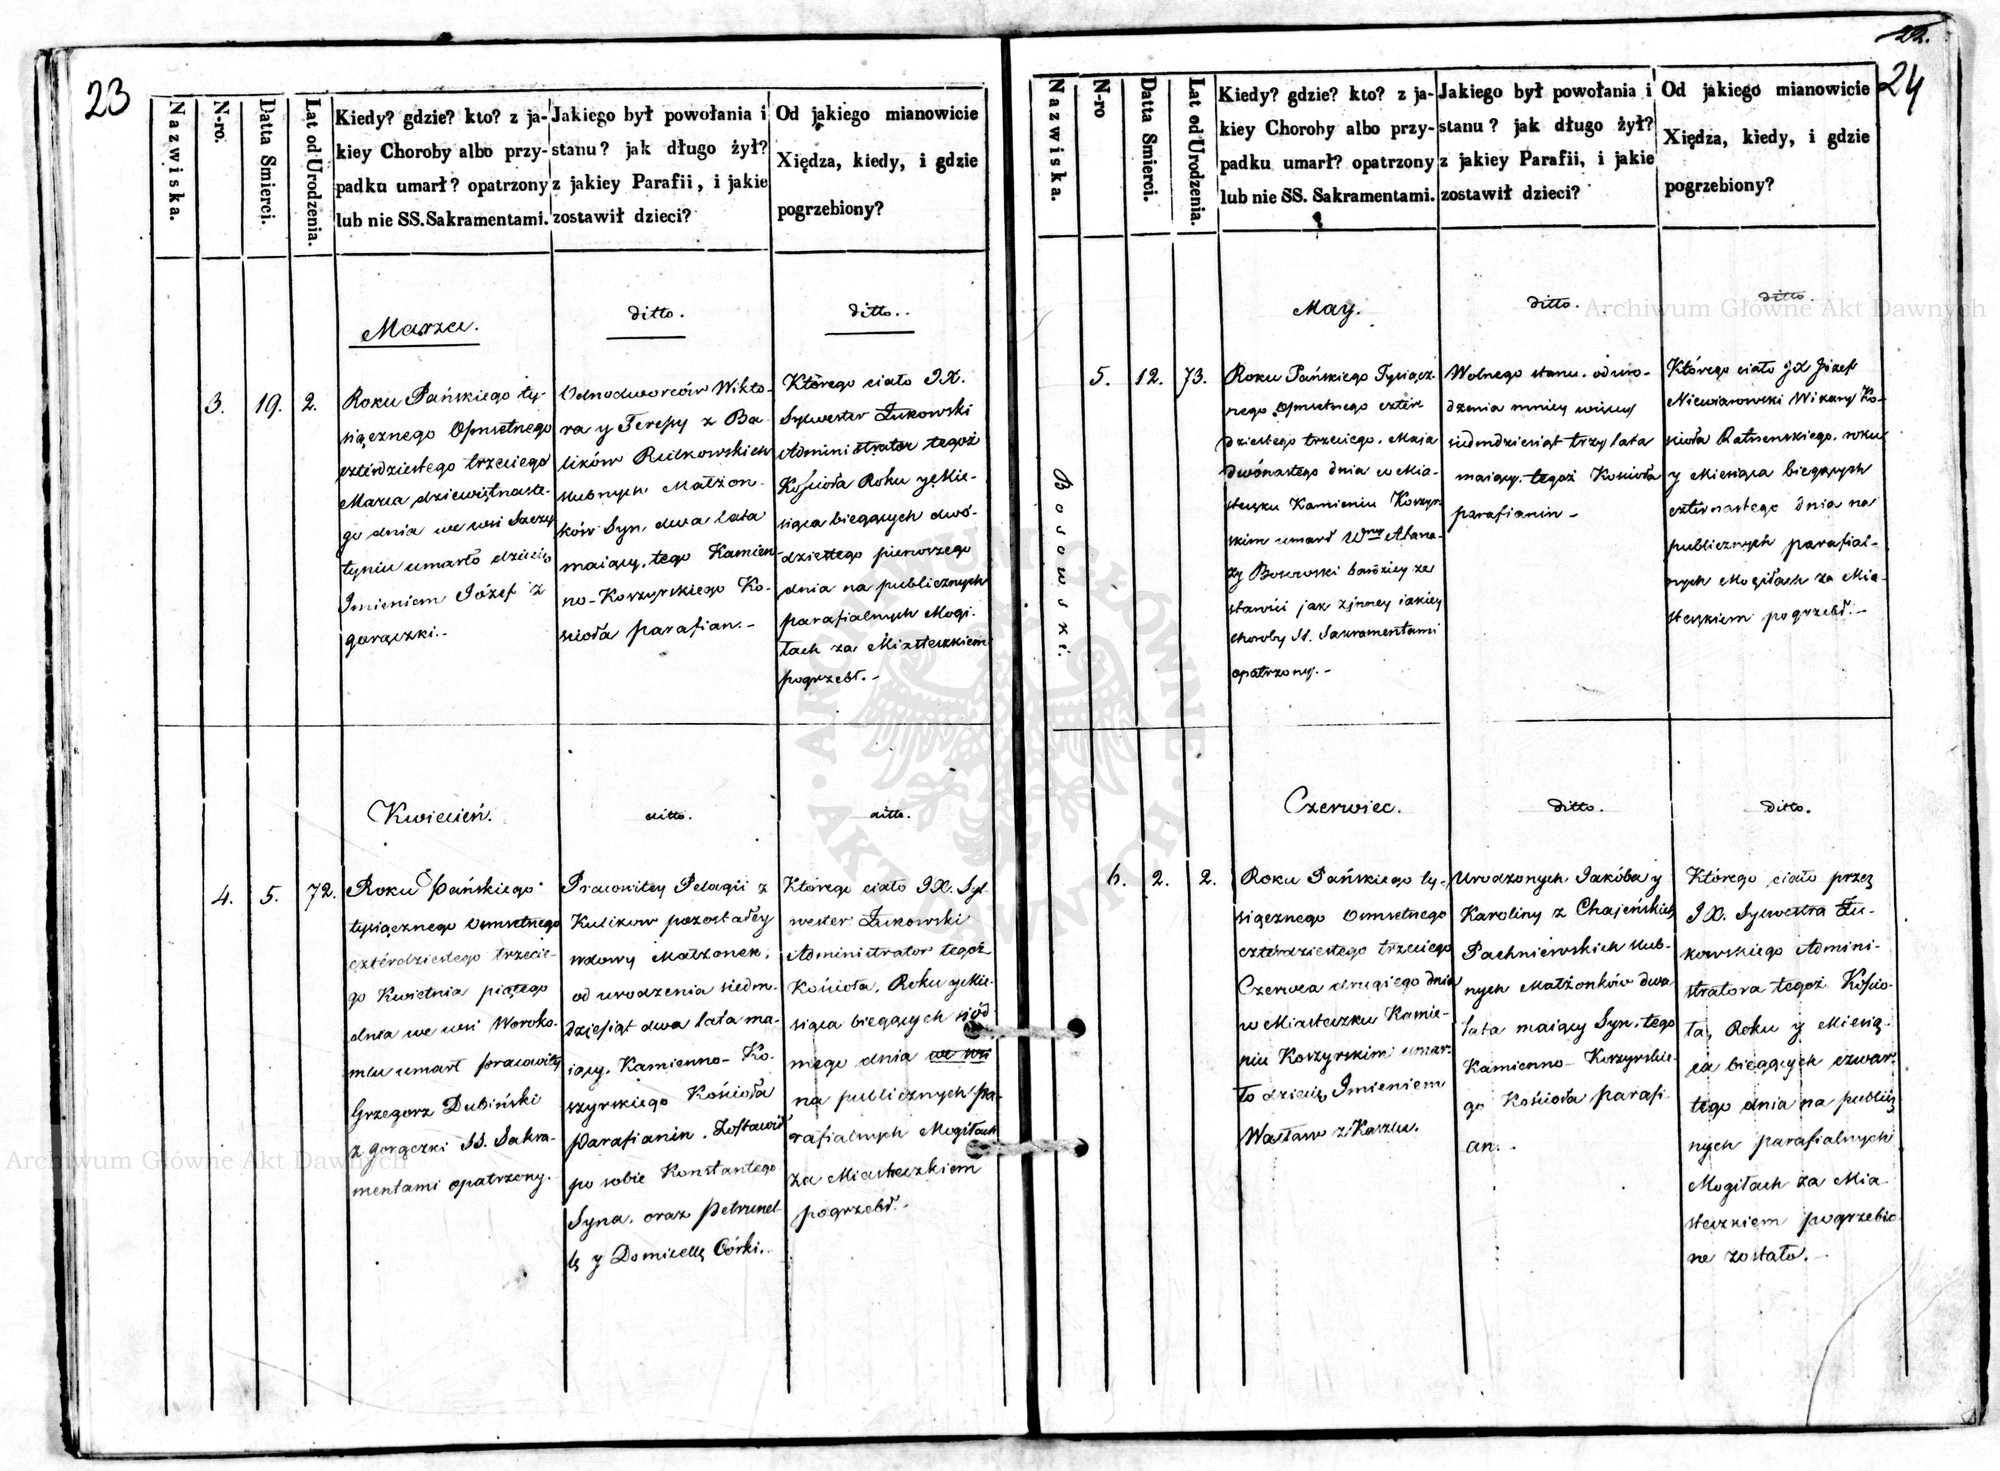 23
Nazwiska.
N-ro.
Datta Smierci.
Lat od Urodzenia.
Kiedy? gdzie? kto? z ja-
kiey Choroby albo przy-
padku umarł? opatrzony
lub nie SS. Sakramentami.
Jakiego był powołania i
stanu? jak długo żył?
z jakiey Parafii, i jakie
zostawił dzieci?
Od jakiego mianowicie
Xiędza, kiedy, i gdzie
pogrzebiony?
Marzec.
ditto.
ditto..
3.
19.
2.
Roku Pańskiego ty-
siącznego Ośmsetnego
czterdziestego trzeciego
Marca dziewiętnaste-
go dnia we wsi Szczy
tyniu umarło dziecię
Imieniem Józef z
gorączki..
Odnodworców Wikto-
ra y Teressy z Ba
lików Rutkowskich
slubnych Małżon-
ków Syn, dwa lata
maiący, tego Kamien
no-Koszyrskiego Ko-
scioła parafian.-
Którego ciało JX.
Sylwester Żukowski
Administrator tegoż
Kościoła Roku y Mie-
siąca bieżących dwó-
dziestego pierwszego
dnia na publicznych
parafialnych Mogi-
łach za Miasteczkiem
pogrzebł.-
Kwiecień.
ditto.
ditto.
4.
5.
72.
Roku Pańskiego
tysiącznego Osmsetnego
czterdziestego trzecie-
go Kwietnia piątego
dnia we wsi Woroko-
mlu umarł pracowity
Grzegorz Dubiński
z gorączki SS. Sakra-
mentami opatrzony.
Pracowitey Pelagii z
Kulikow pozostałey
wdowy Małżonek,
od urodzenia siedm-
dziesiąt dwa lata ma-
iący, Kamienno-Ko-
szyrskiego Kościoła
Parafianin. Zostawił
po sobie Konstantego
Syna, oraz Petrunel-
lę y Domicellę Córki..
Którego ciało JX. Syl-
wester Żukowski
Administrator tegoż
Kościoła, Roku y Mie-
siąca bieżących siód-
mego dnia we wsi
na publicznych pa-
rafialnych Mogiłach
za Miasteczkiem
pogrzebł.-
22.
24
Nazwiska.
N-ro
Datta Smierci.
Lat od Urodzenia.
Kiedy? gdzie? kto? z ja-
kiey Choroby albo przy-
padku umarł? opatrzony
lub nie SS. Sakramentami.
Jakiego był powołania i
stanu? jak długo żył?
z jakiey Parafii, i jakie
zostawił dzieci?
Od jakiego mianowicie
Xiędza, kiedy, i gdzie
pogrzebiony?
May.
ditto.
ditto.
Bosowski.
5.
12.
73.
Roku Pańskiego Tysiącz-
nego Osmsetnego czter
dziestego trzeciego. Maja
dwónastego dnia w Mia-
steczku Kamieniu Koszyr-
skim umarł Wny Atana-
zy Bosowski bardziey ze
starości jak z inney iakiey
choroby SS. Sakramentami
opatrzony.-
Wolnego stanu. od uro-
dzenia mniey więcey
siedmdziesiąt trzy lata
maiący, tegoż Kościoła
parafianin-
Którego ciało JX Józef
Niewiarowski Wikary Ko-
scioła Ratnenskiego, roku
y Miesiąca bieżących
czternastego dnia na
publicznych parafial-
nych Mogiłach za Mia-
steczkiem pogrzebł.-
Czerwiec.
ditto.
ditto.
6.
2.
2.
Roku Pańskiego ty-
siącznego Osmsetnego
czterdziestego trzeciego
Czerwca drugiego dnia
w Miasteczku Kamie-
niu Koszyrskim umar-
ło dziecię Imieniem
Wacław z Kaszlu.
Urodzonych Jakóba y
Karoliny z Chajeńskich
Pachniewskich slub-
nych Małżonków dwa
lata maiący Syn, tego
Kamienno-Koszyrskie-
go Kościoła parafi-
an.-
Którego ciało przez
JX. Sylwestra Żu-
kowskiego Admini-
stratora tegoż Kościo-
ła, Roku y Miesią-
ca bieżących czwar-
tego dnia na publicz
nych parafialnych
Mogiłach za Mia-
steczkiem pogrzebio
ne zostało.-
Archiwum Główne Akt Dawnych
Archiwum Główne Akt Dawnych
ARCHIWUM GŁÓWNE AKT DAWNYCH